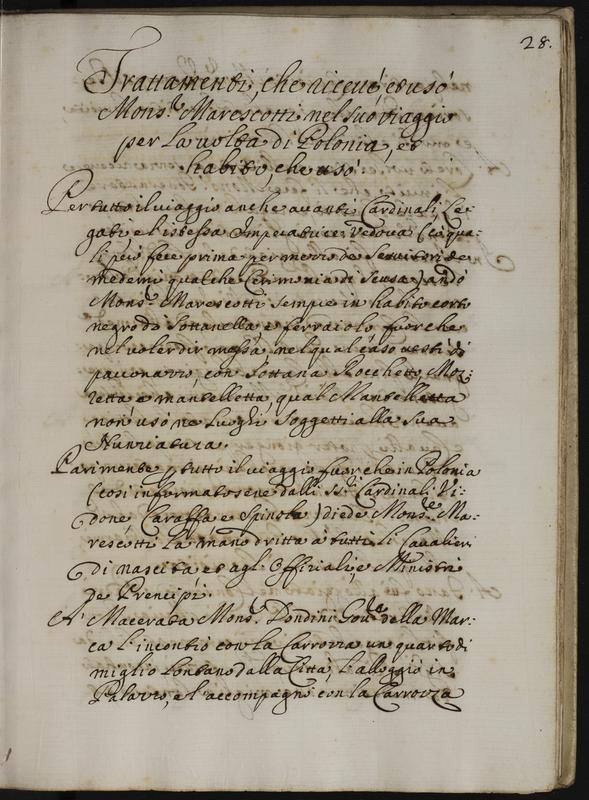 28.
Trattamenti, che riceuè, et usò
Mons.r Marescotti nel suo viaggio
per la uolta di Polonia, et
habito, che usò
Per tutto il uiaggio anche auanti Cardinali, Le-
gati, e l'istessa Imperatrice Vedoua (co i qua-
li però fece prima per mezzo de Seruitori de
medemi qualche Cerimonia di Scusa) andò
Mons.r Marescotti sempre in habito corto
negro di Sottanella, e ferraiolo, fuor che
nel uoler dir messa, nel qual caso uestì di
pauonazzo, con Sottana, Rocchetto, Moz-
zetta e mantelletta, qual Mantelletta
non usò ne luoghi soggetti alla sua
Nunziatura.
Parimente p tutto il uiaggio fuor che in Polonia
(così informatosene dalli SS.ri Cardinali Vi-
doni, Caraffa e Spinola) diede Mons.re Ma-
rescotti la mano dritta à tutti li Caualieri
di nascita et agl' Offitiali, e Ministri
de Prencipi.
A' Macerata Mons.r Dondini Gou.re della Mar-
ca l'incontrò con la Carrozza un quarto di
miglio lontano dalla Città, l'alloggiò in
Palazzo, e l'accompagnò con la Carrozza